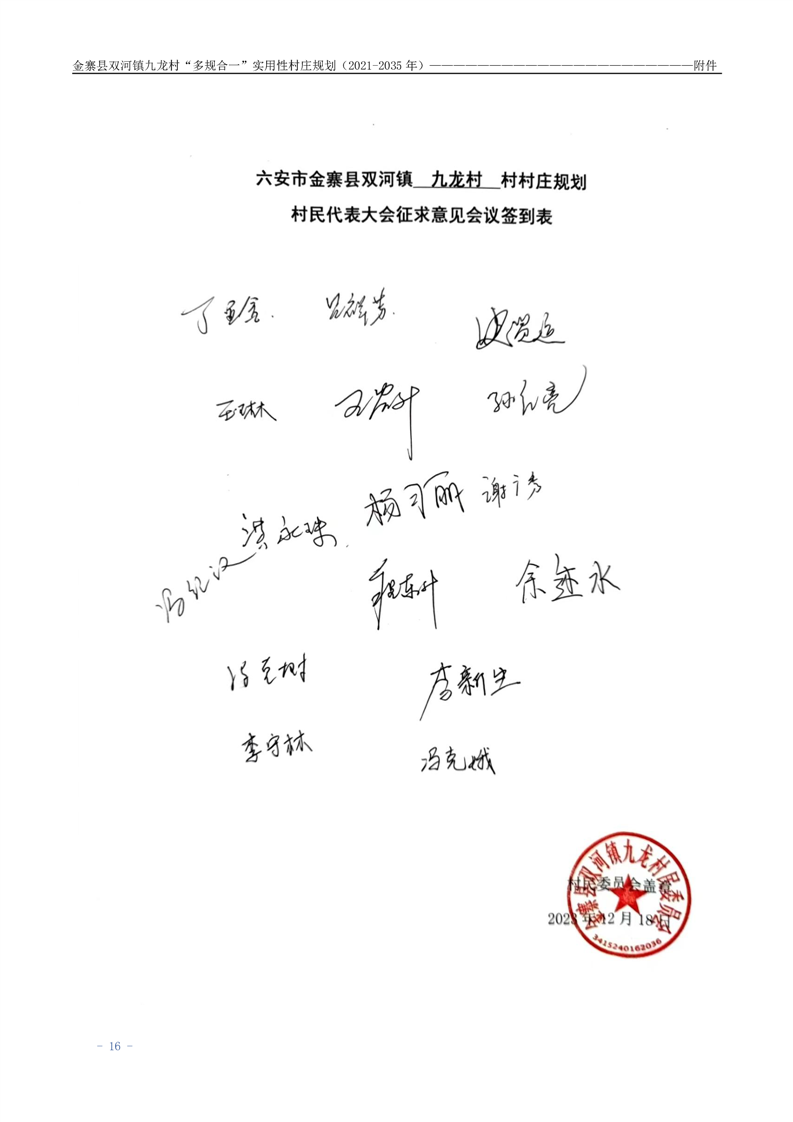 金寨县双河镇九龙村“多规合一”实用性村庄规划（2021-2035 年）——————————————————————附件
六安市金寨县双河镇 九龙村 村村庄规划
村民代表大会征求意见会议签到表
吕祥芳
王琳
孙仁亮
杨习丽 谢广秀
洪永珠
余迹水
冯克树
李新生
李守林
冯克娥
金寨县双河镇九龙村民委员会
村民委员会盖章
2023 年 12 月 18 日
3415240162036
- 16 -